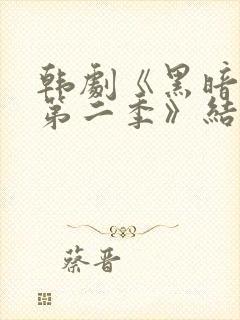 韩劇《黑暗
第二季》結
蔡晋